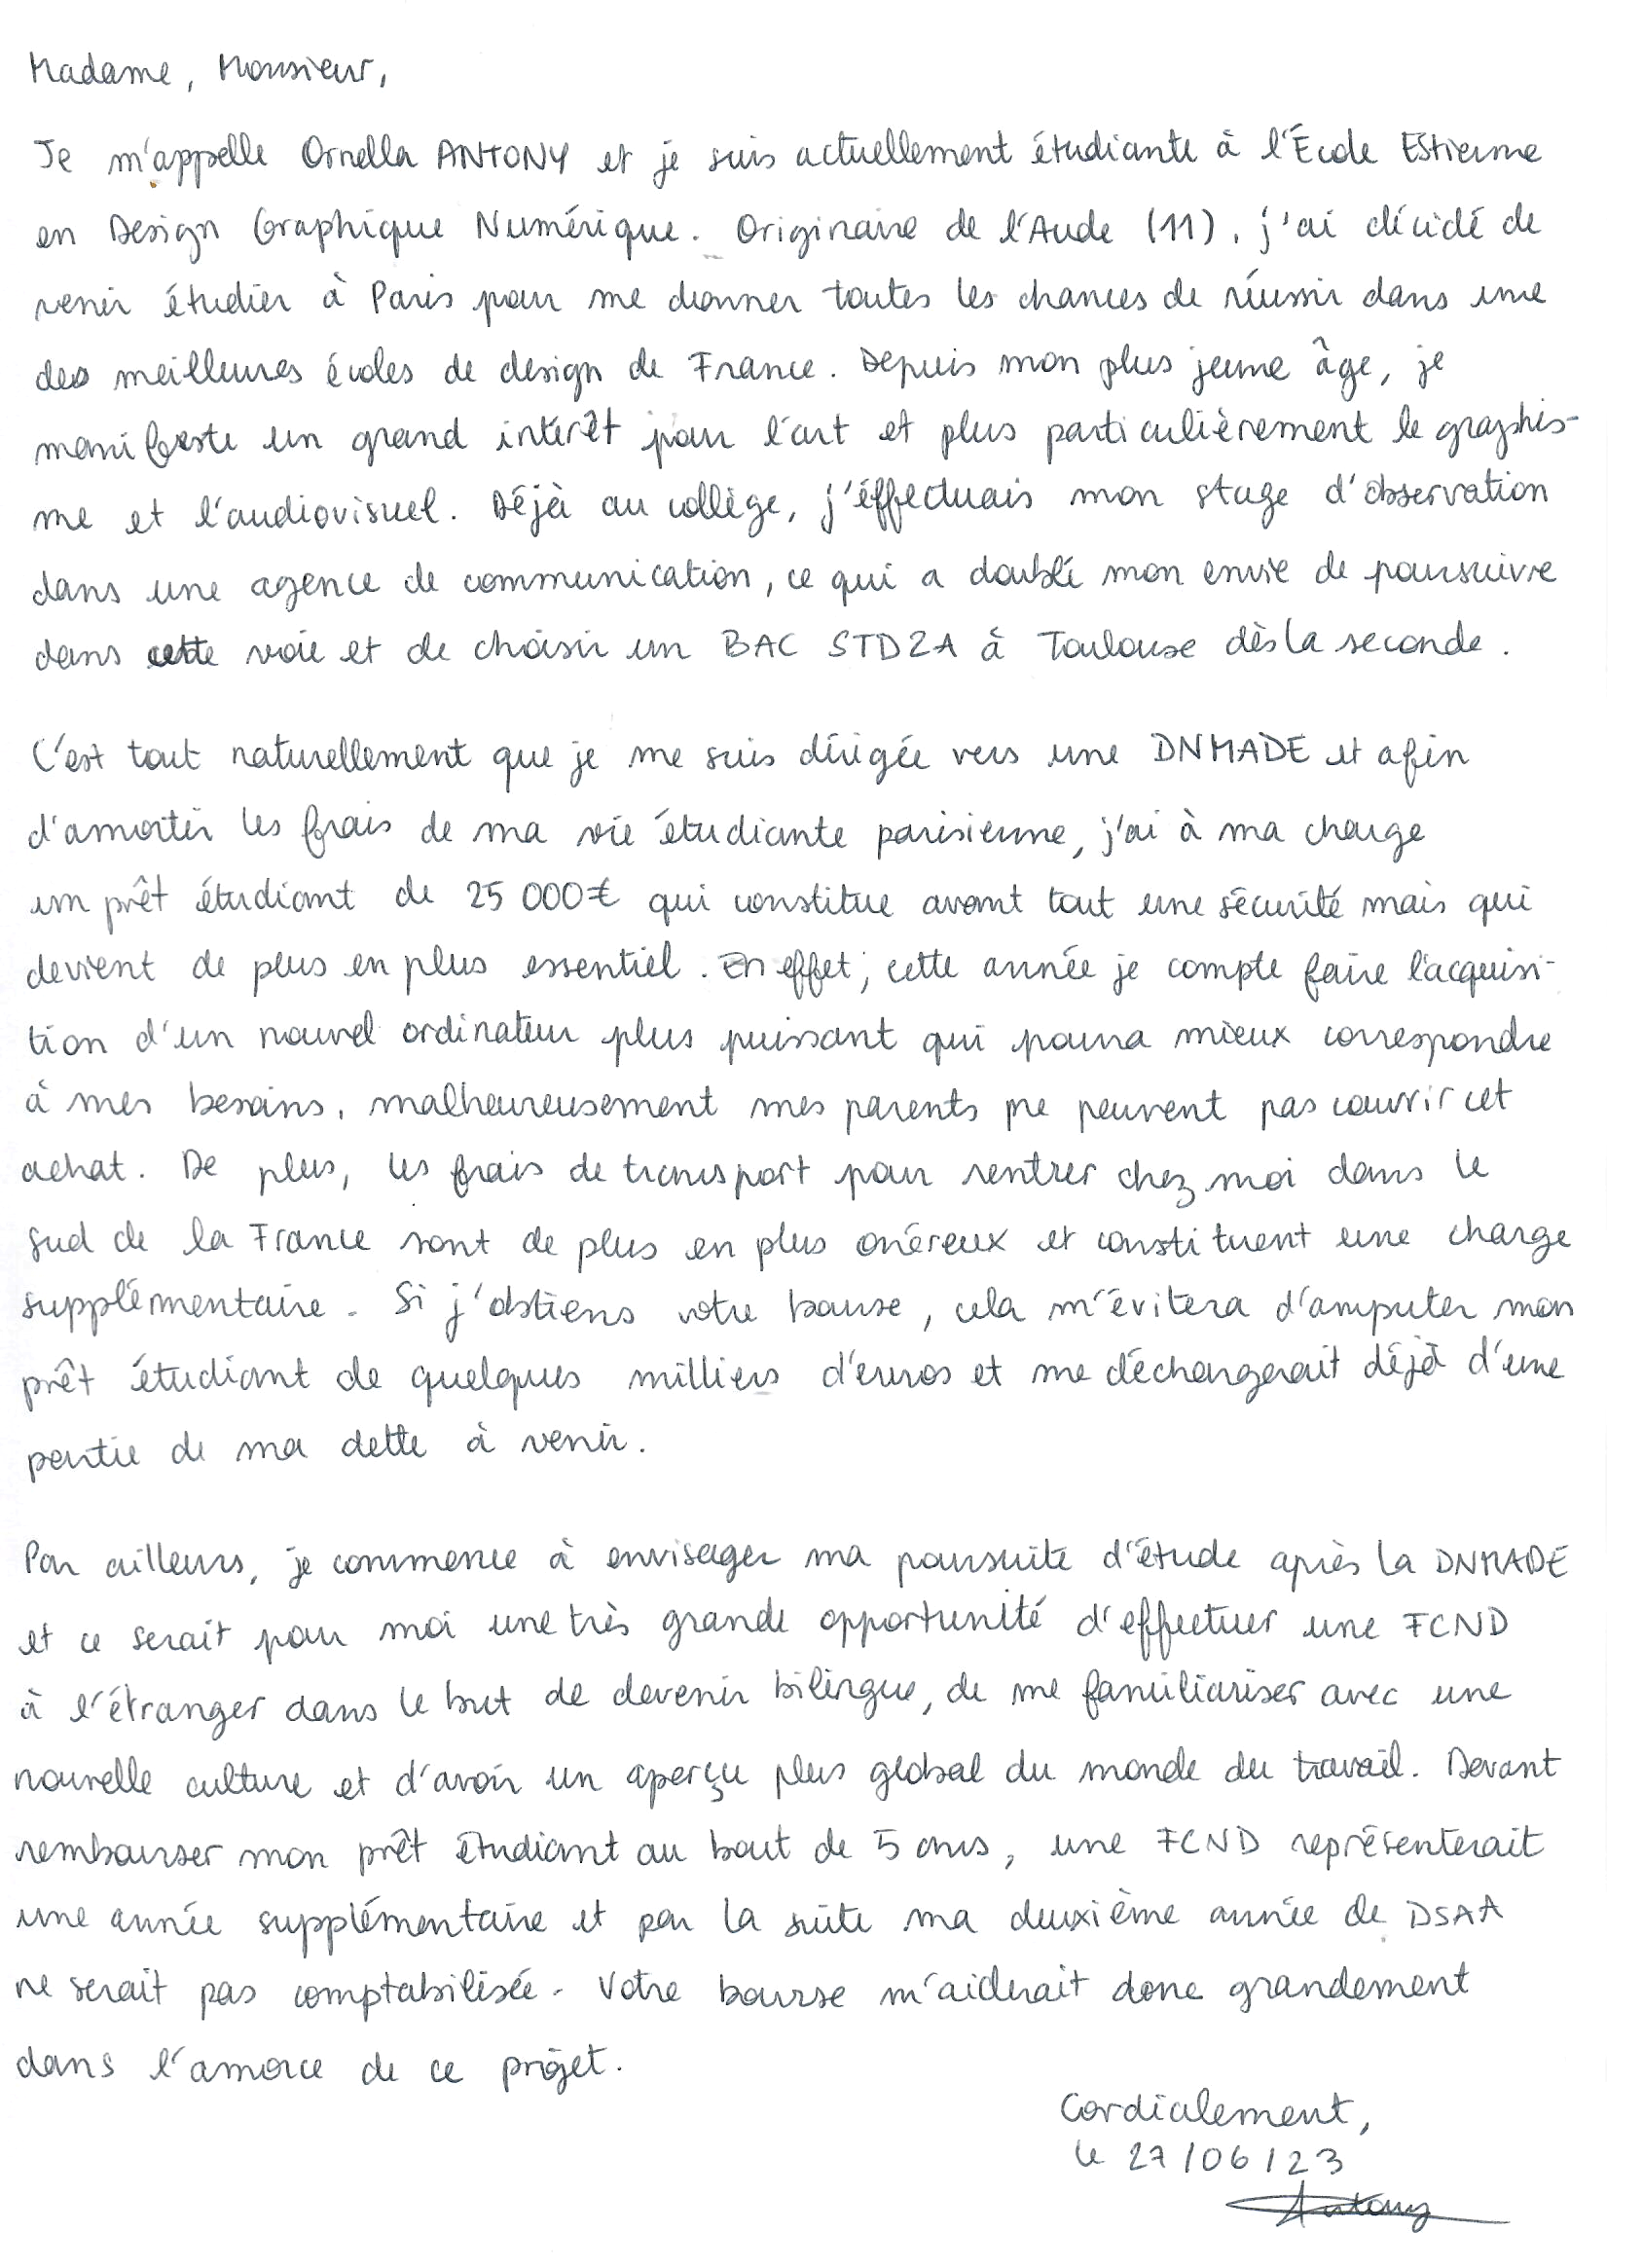 Madame, Monsieur,
Je m'appelle Ornella ANTONY et je suis actuellement étudiante à l'École Estienne
en Design Graphique Numérique. Originaire de l'Aude (11), j'ai décidé de
venir étudier à Paris pour me donner toutes les chances de réussir dans une
des meilleures écoles de design de France. Depuis mon plus jeune âge, je
manifeste un grand intérêt pour l'art et plus particulièrement le graphis-
me et l'audiovisuel. Déjà au collège, j'éffectuais mon stage d'observation
dans une agence de communication, ce qui a doublé mon envie de poursuivre
dans cette voie et de choisir un BAC STD2A à Toulouse dès la seconde.
C'est tout naturellement que je me suis dirigée vers une DNMADE et afin
d'amortir les frais de ma vie étudiante parisienne, j'ai à ma charge
un prêt étudiant de 25 000€ qui constitue avant tout une sécurité mais qui
devient de plus en plus essentiel. En effet, cette année je compte faire l'acquisi-
tion d'un nouvel ordinateur plus puissant qui pourra mieux correspondre
à mes besoins, malheureusement mes parents ne peuvent pas couvrir cet
achat. De plus, les frais de transport pour rentrer chez moi dans le
Sud de la France sont de plus en plus onéreux et constituent une charge
supplémentaire. Si j'obtiens votre bourse, cela m'évitera d'amputer mon
prêt étudiant de quelques milliers d'euros et me déchargerait déjà d'une
partie de ma dette à venir.
Par ailleurs, je commence à envisager ma poursuite d'étude après la DNMADE
et ce serait pour moi une très grande opportunité d'effectuer une FCND
à l'étranger dans le but de devenir bilingue, de me familiariser avec une
nouvelle culture et d'avoir un aperçu plus global du monde du travail. Devant
rembourser mon prêt étudiant au bout de 5 ans, une FCND représenterait
une année supplémentaire et par la suite ma deuxième année de DSAA
ne serait pas comptabilisée. Votre bourse m'aiderait donc grandement
dans l'amorce de ce projet.
Cordialement,
le 27/06/23
Antony